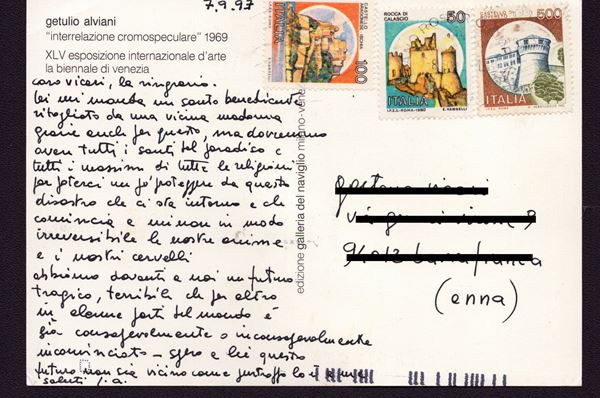 7.9.97
getulio alviani
"interrelazione cromospeculare" 1969
XLV esposizione internazionale d'arte
la biennale di venezia
caro vicari, la ringrazio.
lei mi manda un santo benedicente
ritagliato da una vicina madonna
grazie anche per questo, ma dovremmo
avere tutti i santi del paradiso e
tutti i massimi di tutte le religioni
per poterci un po' proteggere da questo
disastro che ci sta intorno e che
comincia a minare in modo
irreversibile le nostre anime
e i nostri cervelli
abbiamo davanti a noi un futuro
tragico, terribile che per altro
in alcune parti del mondo è
già consapevolmente o inconsapevolmente
incominciato - spero e lei questo
futuro non sia vicino come purtroppo lo è a me
saluti
edizione galleria del naviglio milano-vene
(enna)
CASTELLO
100
ITALIA
ROCCA DI
CALASCIO
50
ITALIA
I.P.Z.S. ROMA-1980
E. VANGELLI
500
ITALIA